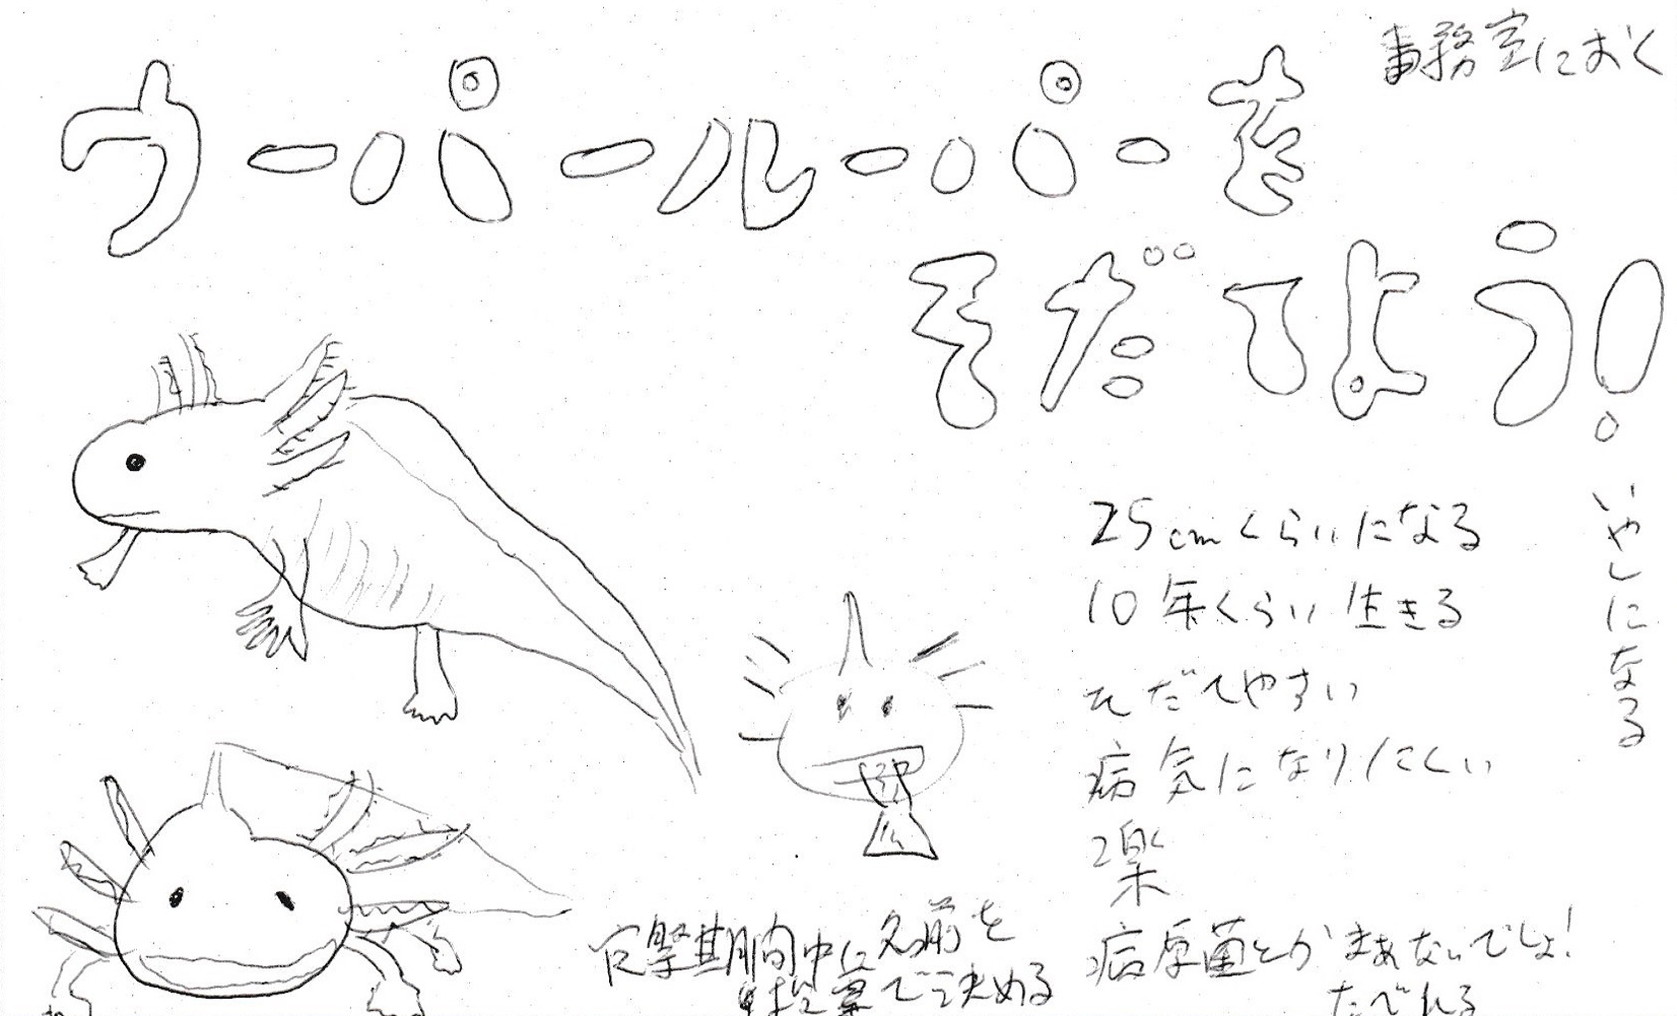 事務室におく
ウーパールーパーを
そだてよう!
25cmくらいになる
10年くらい生きる
そだてやすい
病気になりにくい
楽
病原菌とかまぁないでしょ!
たべれる
いやしになる
祭期間中に名前を
で決める